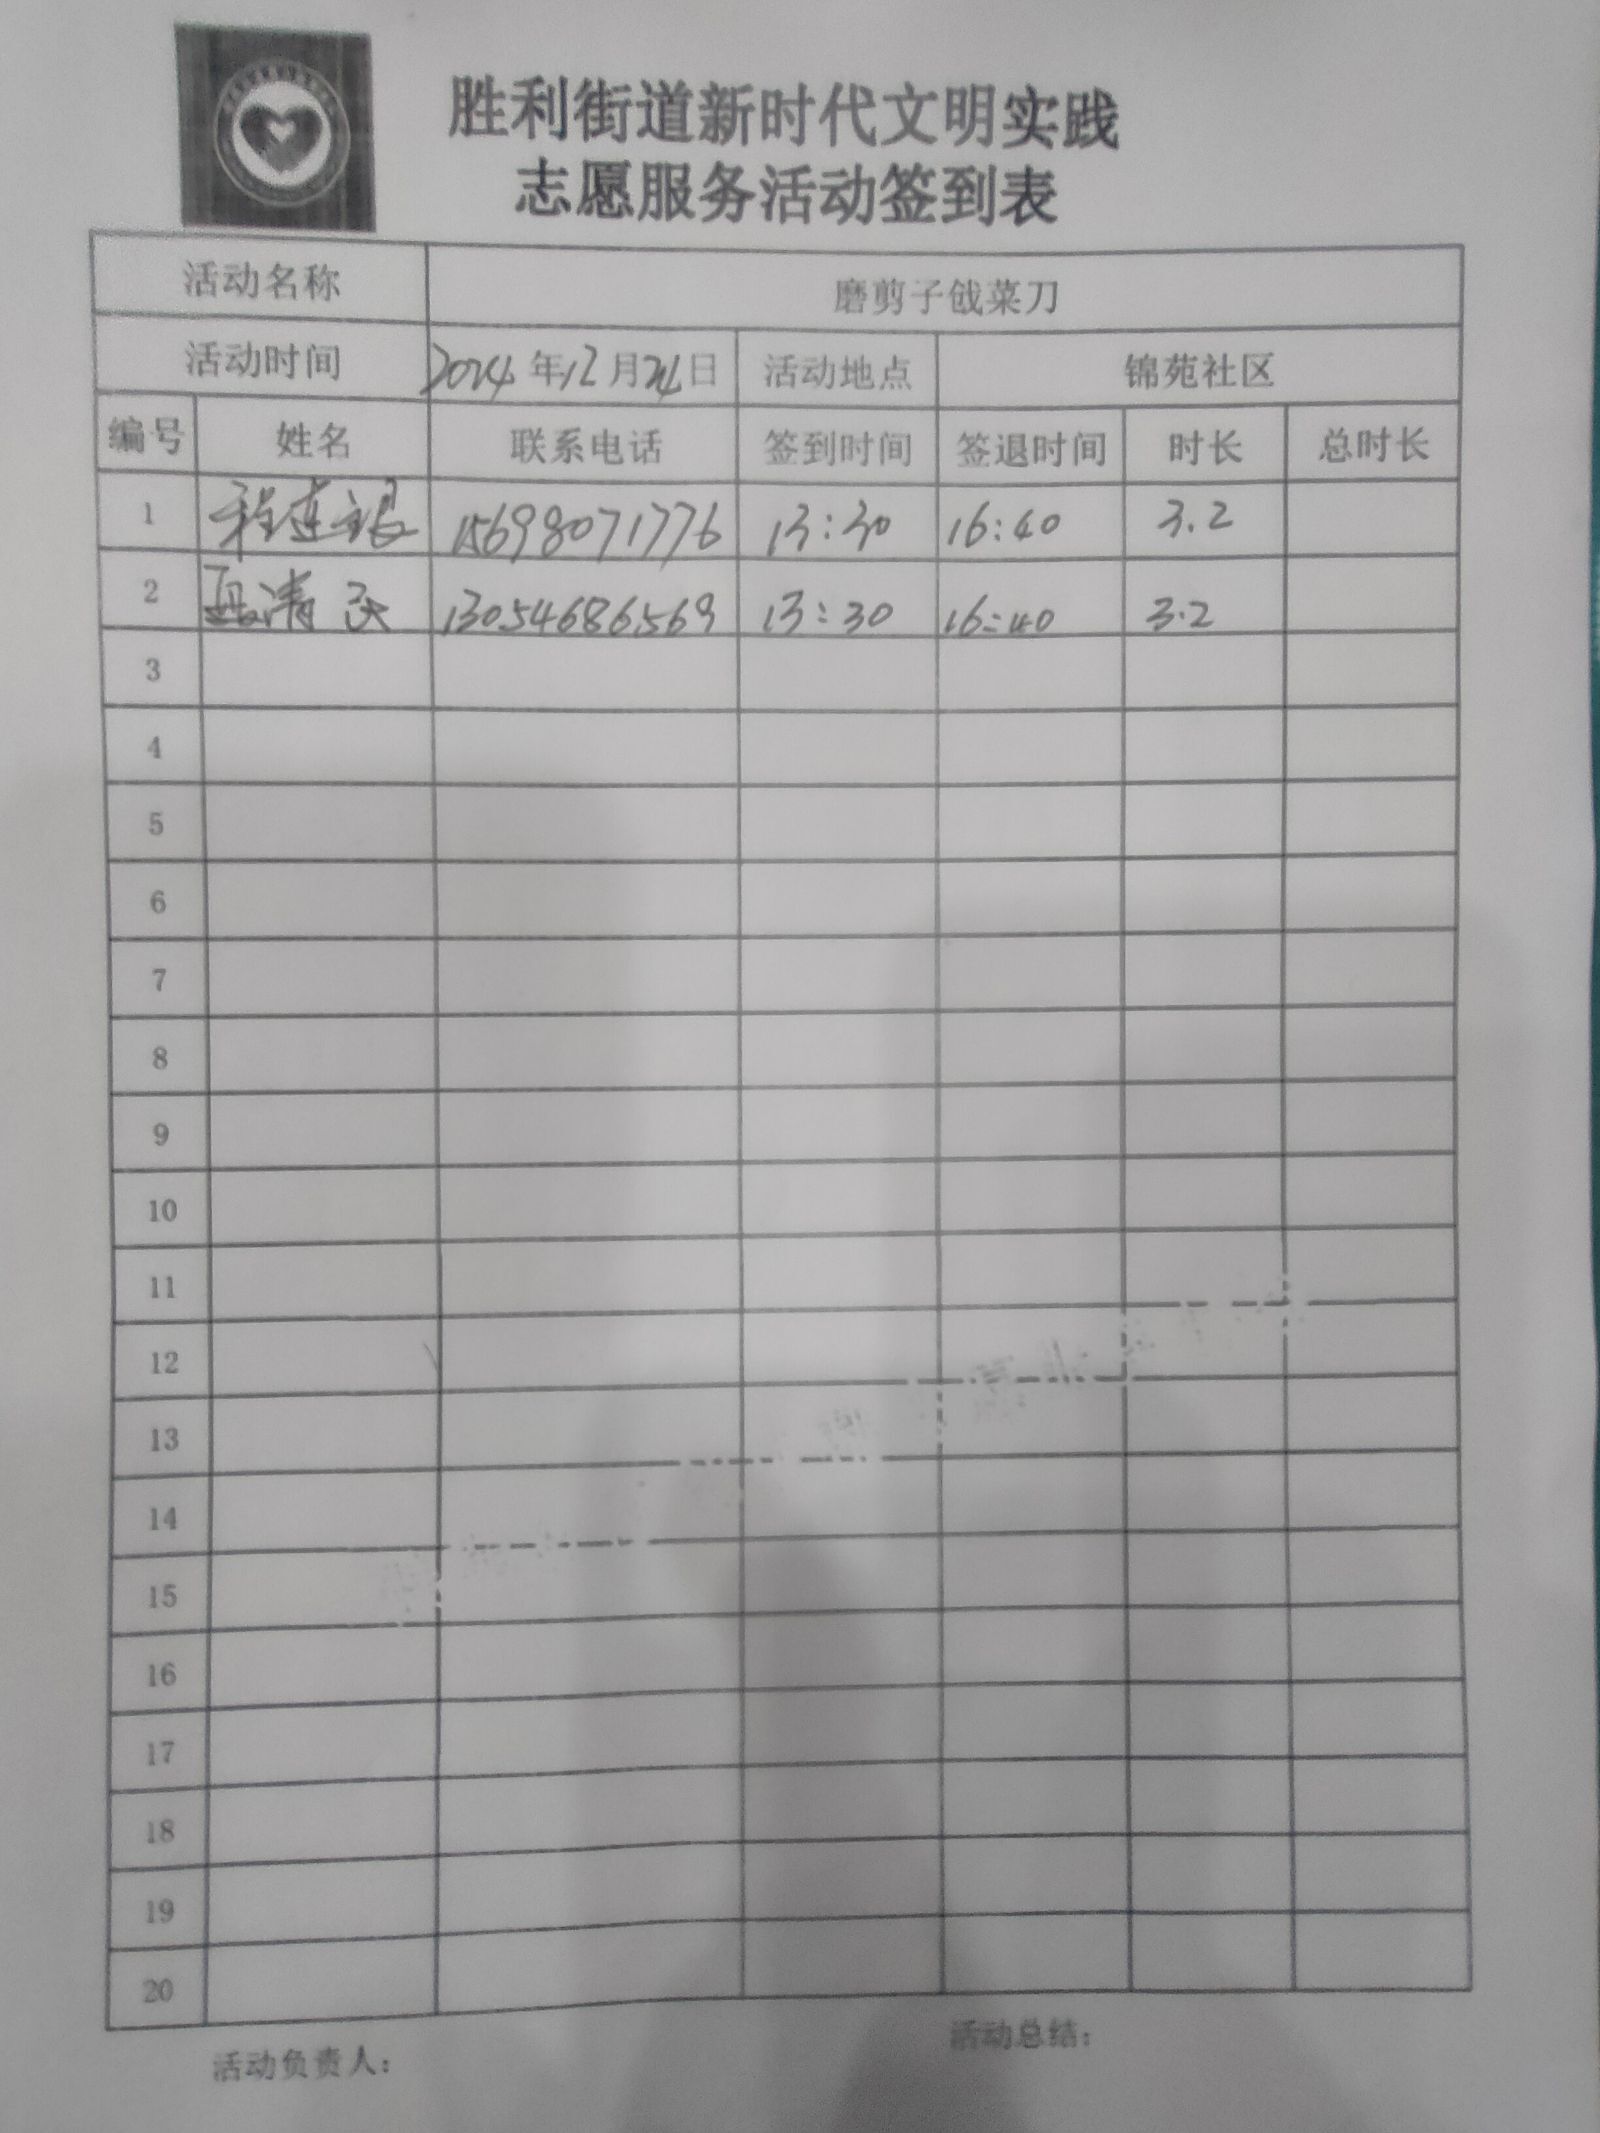 胜利街道新时代文明实践
志愿服务活动签到表
活动名称 磨剪子戗菜刀
活动时间 2024年12月24日 活动地点 锦苑社区
编号 姓名 联系电话 签到时间 签退时间 时长 总时长
1 程连银 15698071776 13:30 16:40 3.2
2 清 13054686569 13:30 16:40 3.2
3
4
5
6
7
8
9
10
11
12
13
14
15
16
17
18
19
20
活动负责人: 活动总结: